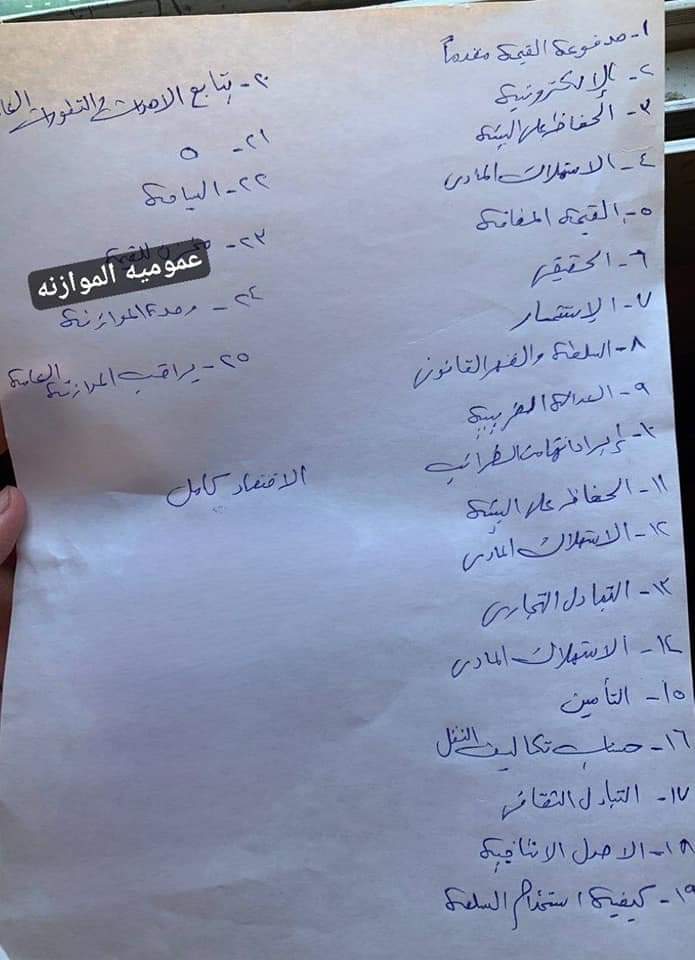 ١- مدفوعة القيمة مقدماً
٢- الإلكترونية
٣- الحفاظ على البيئة
٤- الاستهلاك المادى
٥- القيمة المضافة
٦- الحقيقى
٧- الاستثمار
٨- السلطة والقهر القانونى
٩- العدالة الضريبية
١٠- إيراداتها من الضرائب
١١- الحفاظ على البيئة
١٢- الاستهلاك المادى
١٣- التبادل التجارى
١٤- الاستهلاك المادى
١٥- التأمين
١٦- حساب تكاليف النقل
١٧- التبادل الثقافى
١٨- الاصول الانتاجية
١٩- كيفية استخدام السلعة
٢٠- يتابع الاحداث و التطورات
٢١- ٥
٢٢- السياحة
٢٣- مخزن للقيمة
عموميه الموازنه
٢٤- وحدة الموازنة
٢٥- يراقب الموازنة العامة
الاقتصاد كامل